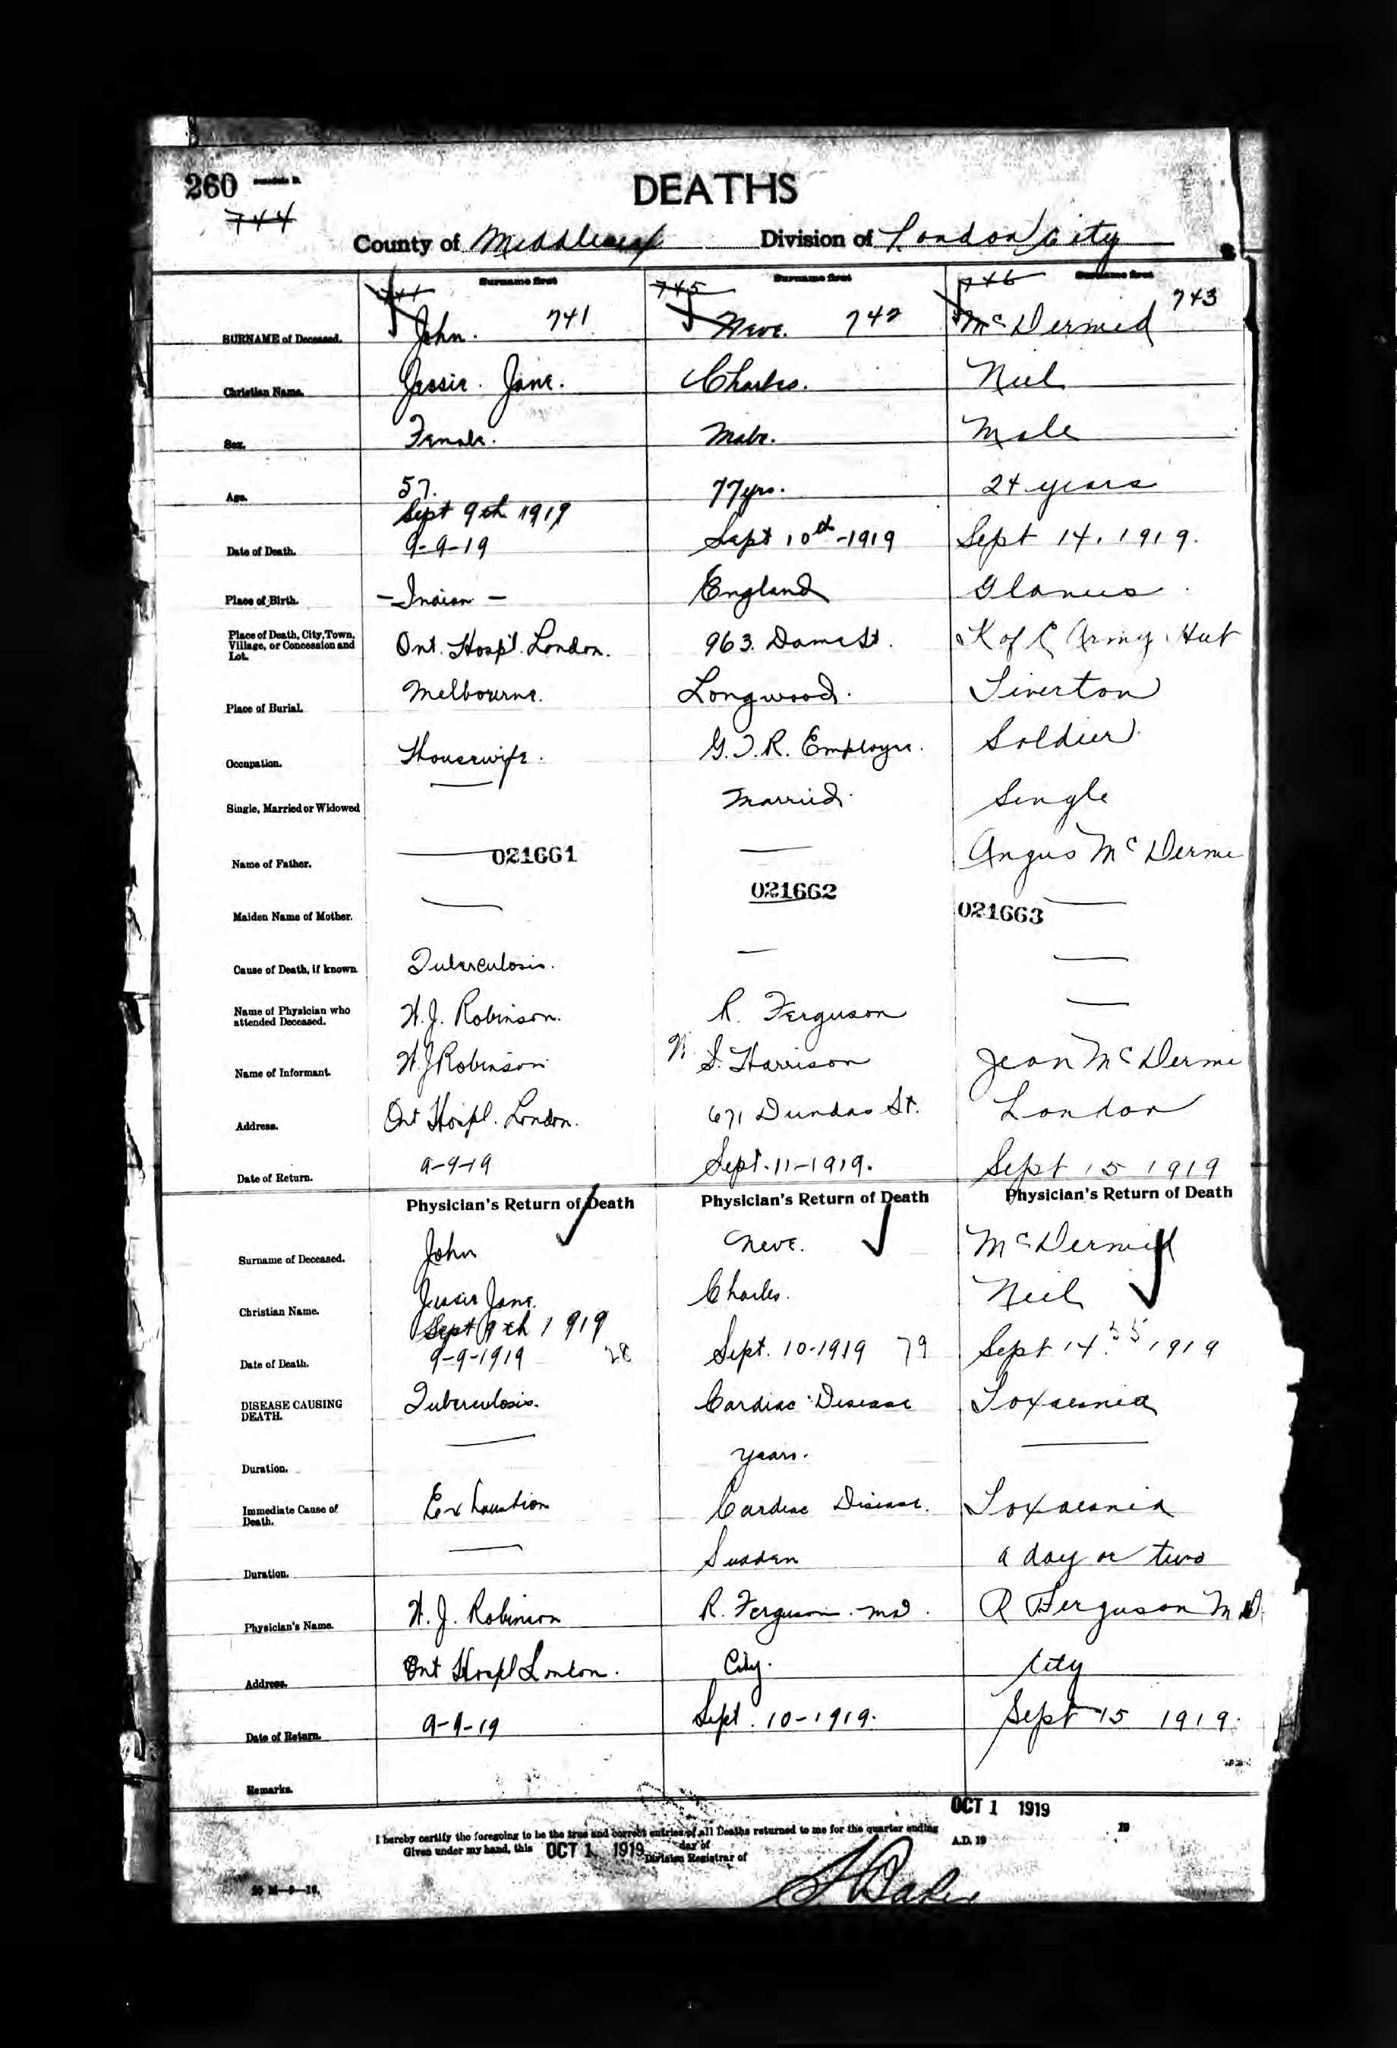 260 Schedule B.
744
DEATHS
County of Middlesex Division of London City
Surname first Surname first Surname first
744 745 746
SURNAME of Deceased. John. 741. Neve. 742 McDermid 743
Christian Name. Jessie. Jane. Charles. Neil
Sex. Female. Male. Male
Age. 57. 77 yrs. 24 years
Sept 9th 1919
Date of Death. 9-9-19 Sept 10th-1919 Sept 14. 1919.
Place of Birth. - Indian - England
Place of Death, City, Town, Village, or Concession and Lot. Ont. Hosp'l. London. 963. Dame St. K of C Army Hut
Place of Burial. Melbourne. Longwood. Tiverton
Occupation. Housewife. G.T.R. Employee. Soldier.
Single, Married or Widowed — Married. Single
Name of Father. — 021661 — Angus McDerm
Maiden Name of Mother. — 021662 021663 —
Cause of Death, if known. Tuberculosis. — —
Name of Physician who attended Deceased. W. J. Robinson. R. Ferguson —
Name of Informant. W. J Robinson. N. S. Harrison Jean McDerm
Address. Ont Hospl. London. 671 Dundas St. London
Date of Return. 9-9-19 Sept. 11-1919. Sept 15 1919
Physician's Return of Death Physician's Return of Death Physician's Return of Death
Surname of Deceased. John Neve. McDermid
Christian Name. Jessie Jane. Charles. Neil
Sept 9th 1919
Date of Death. 9-9-1919 28 Sept. 10-1919 79 Sept 14. 35 1919
DISEASE CAUSING DEATH. Tuberculosis. Cardiac Disease Toxaemia
Duration. — years. —
Immediate Cause of Death. Exhaustion Cardiac Disease. Toxaemia
Duration. — Sudden a day or two
Physician's Name. W. J. Robinson R. Ferguson. MD. R Ferguson M.D.
Address. Ont Hospl London. City. City
Date of Return. 9-9-19 Sept. 10-1919. Sept 15 1919.
Remarks.
OCT 1 1919
I hereby certify the foregoing to be the true and correct entries of all Deaths returned to me for the quarter ending 19
Given under my hand, this OCT 1 1919 day of A.D. 19
Division Registrar of